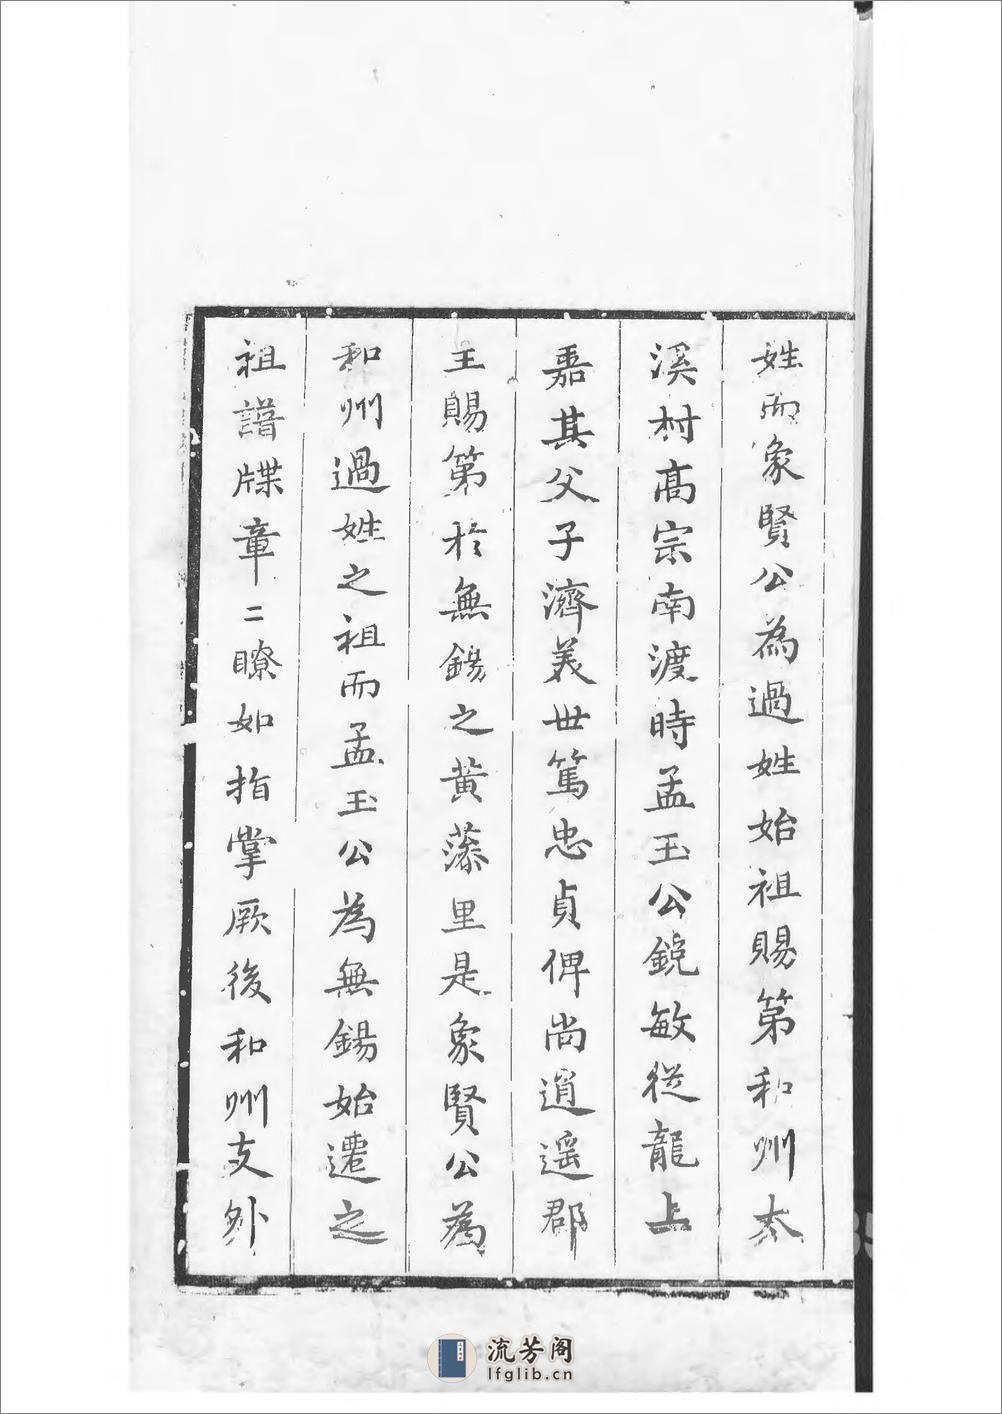 姓而象賢公為過姓始祖賜第和州太
溪村髙宗南渡時孟玉公銳敏從龍上
嘉其父子濟美世篤忠貞俾尚逍遥郡
王賜第於無錫之黄蔆里是象賢公為
和州過姓之祖而孟玉公為無錫始遷之
祖譜牒章二瞭如指掌厥後和州支外
流芳阁
lfglib.cn